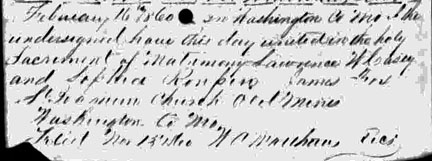 February 16 1860 in Washington Co Mo I the
undersigned have this day united in the holy
Sacrament of Matrimony Lawrence W Casey
and Sophia James Fox
St Joachim Church Old Mines
Washington Co Mo
Filed Nov 13 1860 W A Matthews Rec